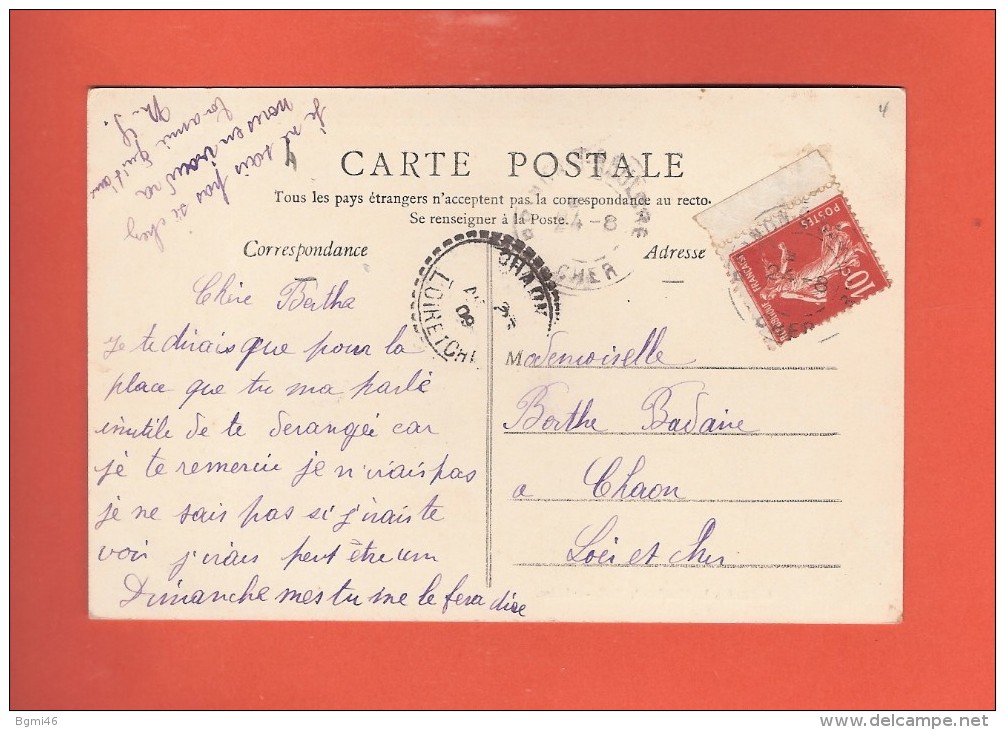 4
Je ne sais pas si chez
nous en voudra
ta amie qui t'aime
M. G.
4
CARTE POSTALE
Tous les pays étrangers n'acceptent pas la correspondance au recto.
Se renseigner à la Poste.
Correspondance
Adresse
24-8
CHER
CHAON
LOIR-ET-CHER
09
POSTES
10
CHER
Chère Bertha
Je te dirais que pour la
place que tu ma parlé
inutile de te derangée car
je te remercie je n'irais pas
je ne sais pas si j'irais te
voir j'irais peut être um
Dimanche mes tu me le fera dire
Mademoiselle
Berthe Badaire
a Chaon
Loir et Cher
Bgmi46
© delcampe.net